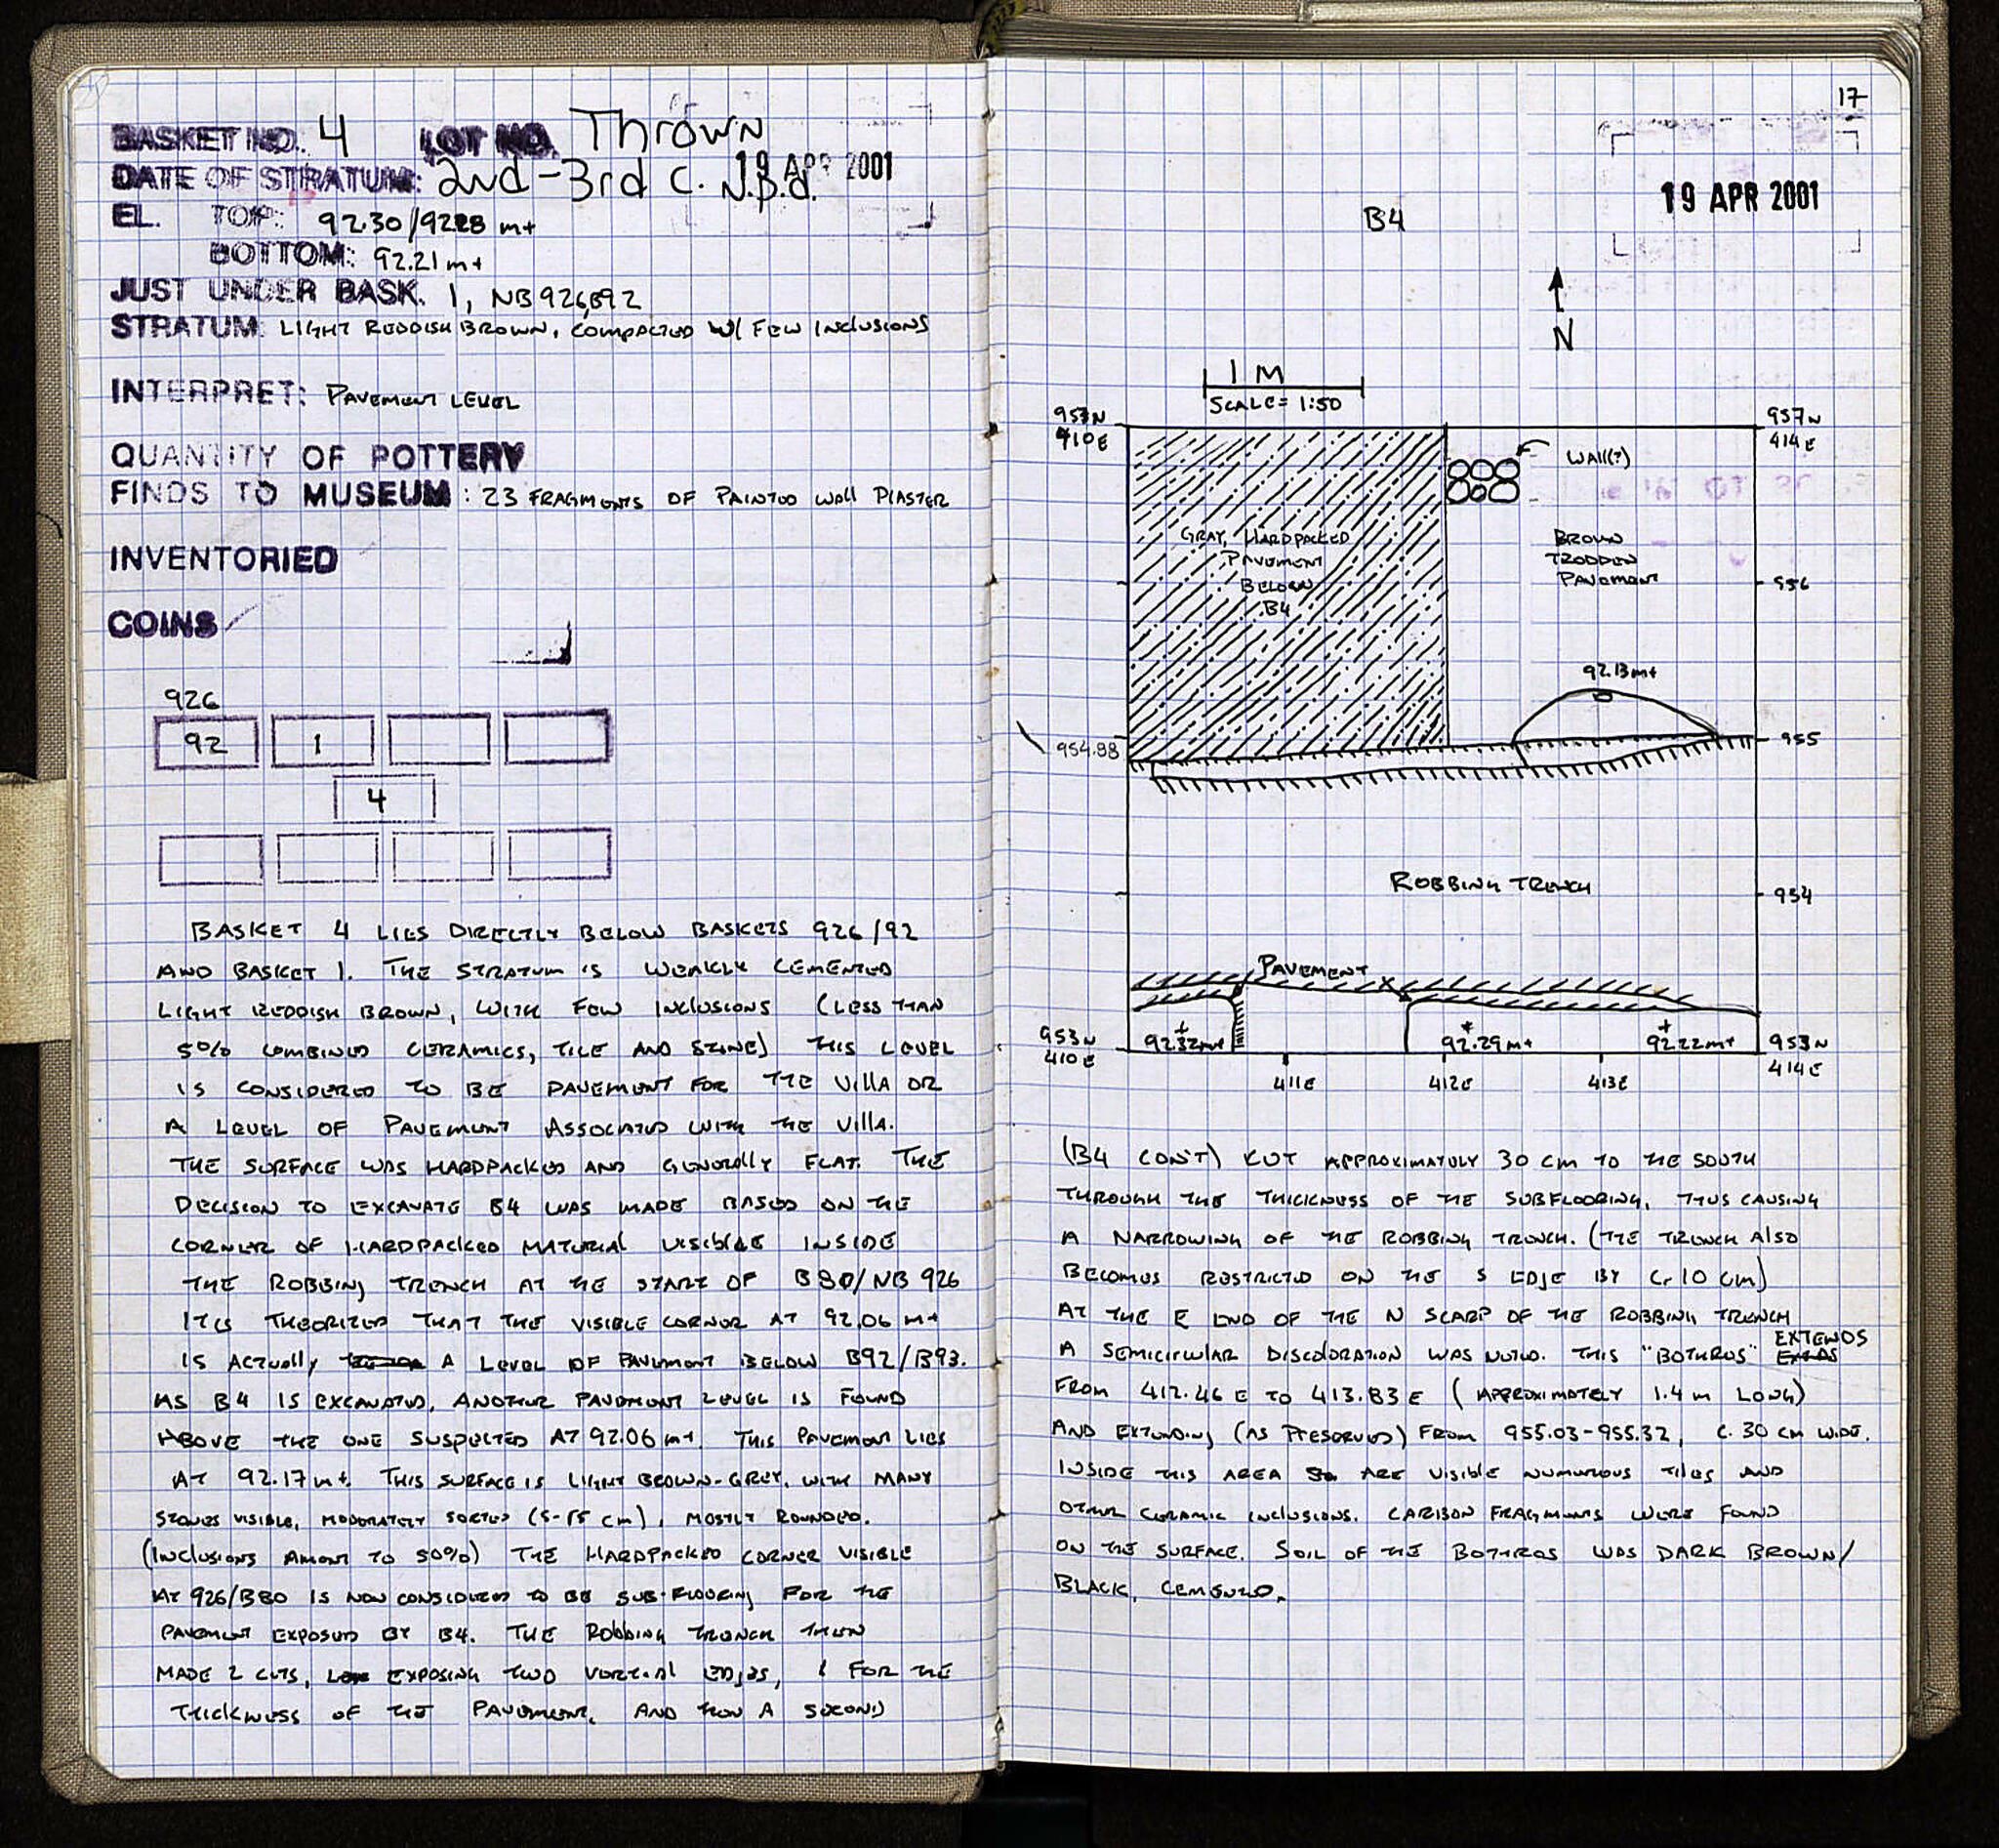 BASKET NO. 4 LOT NO. Thrown
19 APR 2001
DATE OF STRATUM: 2nd-3rd c. N.p.d.
EL. TOP: 92.30/92.28 m+
BOTTOM: 92.21 m+
JUST UNDER BASK. 1, NB926, B92
STRATUM: LIGHT REDDISH BROWN, COMPACTED W/ FEW INCLUSIONS
INTERPRET: PAVEMENT LEVEL
QUANTITY OF POTTERY
FINDS TO MUSEUM: 23 FRAGMENTS OF PAINTED WALL PLASTER
INVENTORIED
COINS
926
92 1
4
BASKET 4 LIES DIRECTLY BELOW BASKETS 926/92
AND BASKET 1. THE STRATUM IS WEAKLY CEMENTED
LIGHT REDDISH BROWN, WITH FEW INCLUSIONS (LESS THAN
5% COMBINED CERAMICS, TILE AND STONE) THIS LEVEL
IS CONSIDERED TO BE PAVEMENT FOR THE VILLA OR
A LEVEL OF PAVEMENT ASSOCIATED WITH THE VILLA.
THE SURFACE WAS HARDPACKED AND GENERALLY FLAT. THE
DECISION TO EXCAVATE B4 WAS MADE BASED ON THE
CORNER OF HARDPACKED MATERIAL VISIBLE INSIDE
THE ROBBING TRENCH AT THE START OF B80/NB 926
IT IS THEORIZED THAT THE VISIBLE CORNER AT 92.06 m+
IS ACTUALLY A LEVEL OF PAVEMENT BELOW B92/B93.
AS B4 IS EXCAVATED, ANOTHER PAVEMENT LEVEL IS FOUND
ABOVE THE ONE SUSPECTED AT 92.06 m+. THIS PAVEMENT LIES
AT 92.17 m+. THIS SURFACE IS LIGHT BROWN-GREY, WITH MANY
STONES VISIBLE, MODERATELY SORTED (5-15 cm), MOSTLY ROUNDED.
(INCLUSIONS AMONT TO 50%) THE HARDPACKED CORNER VISIBLE
AT 926/B80 IS NOW CONSIDERED TO BE SUB-FLOORING FOR THE
PAVEMENT EXPOSED BY B4. THE ROBBING TRENCH THEN
MADE 2 CUTS, EXPOSING TWO VERTICAL EDGES, 1 FOR THE
THICKNESS OF THE PAVEMENT, AND THEN A SECOND
17
19 APR 2001
B4
N
1 M
SCALE= 1:50
957N
410E
957N
414E
WALL(?)
GRAY, HARDPACKED
PAVEMENT
BELOW
B4
BROWN
TRODDEN
PAVEMENT
956
92.13m+
954.88
955
ROBBING TRENCH
954
PAVEMENT
953N
410E
92.32m+
92.29m+
92.22m+
953N
414E
411E
412E
413E
(B4 CON'T) CUT APPROXIMATELY 30 CM TO THE SOUTH
THROUGH THE THICKNESS OF THE SUBFLOORING, THUS CAUSING
A NARROWING OF THE ROBBING TRENCH. (THE TRENCH ALSO
BECOMES RESTRICTED ON THE S EDGE BY C. 10 CM)
AT THE E END OF THE N SCARP OF THE ROBBING TRENCH
A SEMICIRCULAR DISCOLORATION WAS NOTED. THIS "BOTHROS" EXTENDS
FROM 412.46 E TO 413.83 E (APPROXIMATELY 1.4 m LONG)
AND EXTENDING (AS PRESERVED) FROM 955.03-955.32, C. 30 CM WIDE.
INSIDE THIS AREA ARE VISIBLE NUMEROUS TILES AND
OTHER CERAMIC INCLUSIONS. CARBON FRAGMENTS WERE FOUND
ON THE SURFACE. SOIL OF THE BOTHROS WAS DARK BROWN/
BLACK, CEMENTED.